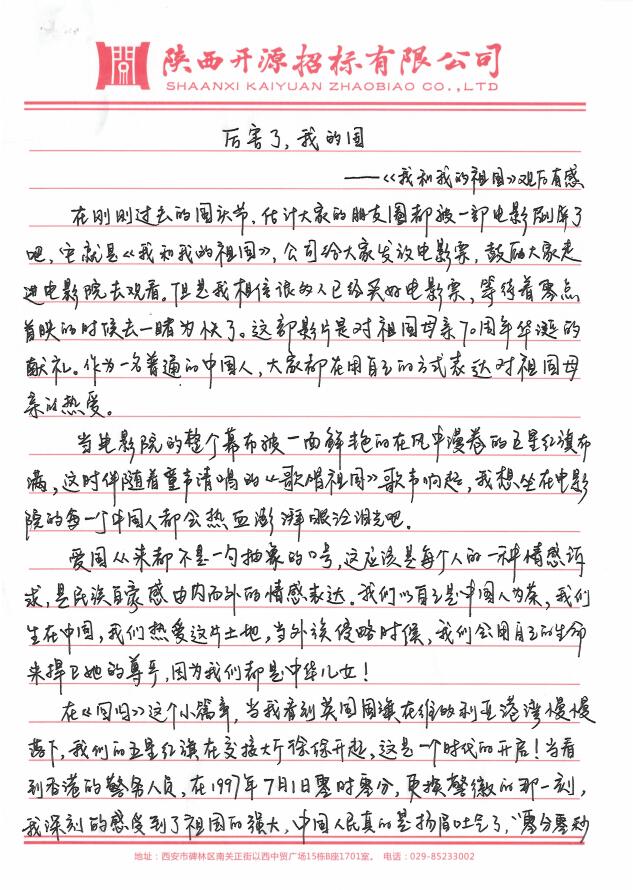 陕西开源招标有限公司
SHAANXI KAIYUAN ZHAOBIAO CO.,LTD
厉害了，我的国
——《我和我的祖国》观后有感
在刚刚过去的国庆节，估计大家的朋友圈都被一部电影刷屏了
吧，它就是《我和我的祖国》，公司给大家发放电影票，鼓励大家走
进电影院去观看。但是我相信很多人已经买好电影票，等待着零点
首映的时候去一睹为快了。这部影片是对祖国母亲70周年华诞的
献礼。作为一名普通的中国人，大家都在用自己的方式表达对祖国母
亲的热爱。
当电影院的整个幕布被一面鲜艳的在风中漫卷的五星红旗布
满，这时伴随着童声清唱的《歌唱祖国》歌声响起，我想坐在电影
院的每一个中国人都会热血澎湃眼泛泪光吧。
爱国从来都不是一句抽象的口号，这应该是每个人的一种情感诉
求，是民族自豪感由内而外的情感表达。我们以自己是中国人为荣，我们
生在中国，我们热爱这片土地，当外族侵略时候，我们会用自己的生命
来捍卫她的尊严，因为我们都是中华儿女！
在《回归》这个小篇章，当我看到英国国旗在维多利亚港湾慢慢
落下，我们的五星红旗在交接大厅徐徐升起，这是一个时代的开启！当看
到香港的警务人员，在1997年7月1日零时零分，更换警徽的那一刻，
我深刻的感受到了祖国的强大，中国人民真的是扬眉吐气了，“零分零秒
地址：西安市碑林区南关正街以西中贸广场15栋B座1701室。 电话：029-85233002